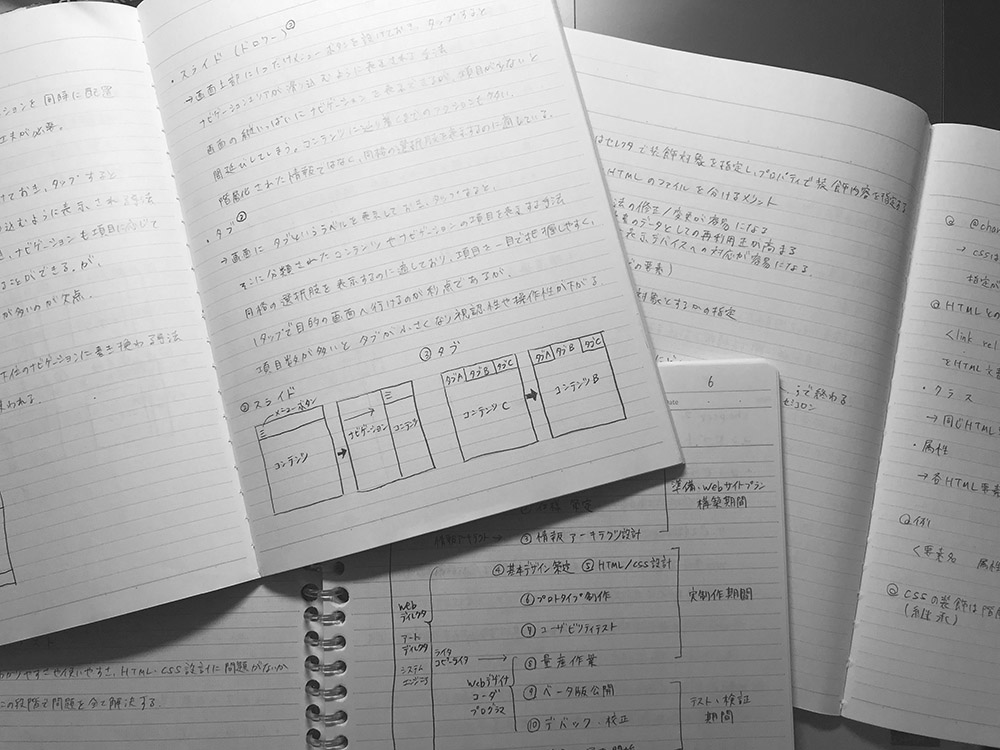 ・スライド (ドロワー)②
→画面上部に1つだけメニューボタンを設けておき、タップすると
ナビゲーションエリアが滑り込むように表示される手法
画面の縦いっぱいにナビゲーションを表示できるが、項目が少ないと
間延びしてしまう。コンテンツに辿り着くまでのアクションも多い。
階層化された情報ではなく、同格の選択肢を表示するのに適している。
・タブ②
→画面にタブというラベルを表示しておき、タップすると、
そこに分類されたコンテンツやナビゲーションの項目を表示する手法
同格の選択肢を表示するのに適しており、項目を一目で把握しやすく、
1タップで目的の画面へ行けるのが利点であるが、
項目数が多いとタブが小さくなり視認性や操作性が下がる。
②スライド
メニューボタン
コンテンツ
ナビゲーション
コンテンツ
③タブ
タブA タブB タブC
コンテンツC
タブA タブB タブC
コンテンツB
ションを同時に配置
工夫が必要。
けておき、タップすると
り込むように表示される手法
、ナビゲーションも項目に応じて
ることができる。が、
が多いのが欠点。
下位のナビゲーションに置き換わる手法
われる。
はセレクタで装飾対象を指定し、プロパティで装飾内容を指定する
HTMLのファイルを分けるメリット
法の修正/変更が容易になる
のデータとしての再利用性が高まる
表示デバイスへの対応が容易になる。
の要素)
対象とするかの指定
で終わる
@char
→cssは
指定が
HTMLとの
<link rel
をHTML文書
・クラス
→同じHTML
・属性
→各HTML要素
例
<要素名 属性
CSSの装飾は階層
(継承)
6
準備・Webサイトプラン
構築期間
③情報アーキテクツ設計
④基本デザイン策定 ⑤HTML/CSS設計
⑥プロトタイプ制作
⑦ユーザビリティテスト
⑧量産作業
⑨ベータ版公開
⑩デバック・校正
実制作期間
テスト・検証
期間
Web
ディレクタ
アート
ディレクタ
システム
エンジニア
ライタ
コピーライタ
Webデザイナ
コーダ
プログラマ
わかりやすさや使いやすさ、HTML・CSS設計に問題がないか
この段階で問題を全て解決する。